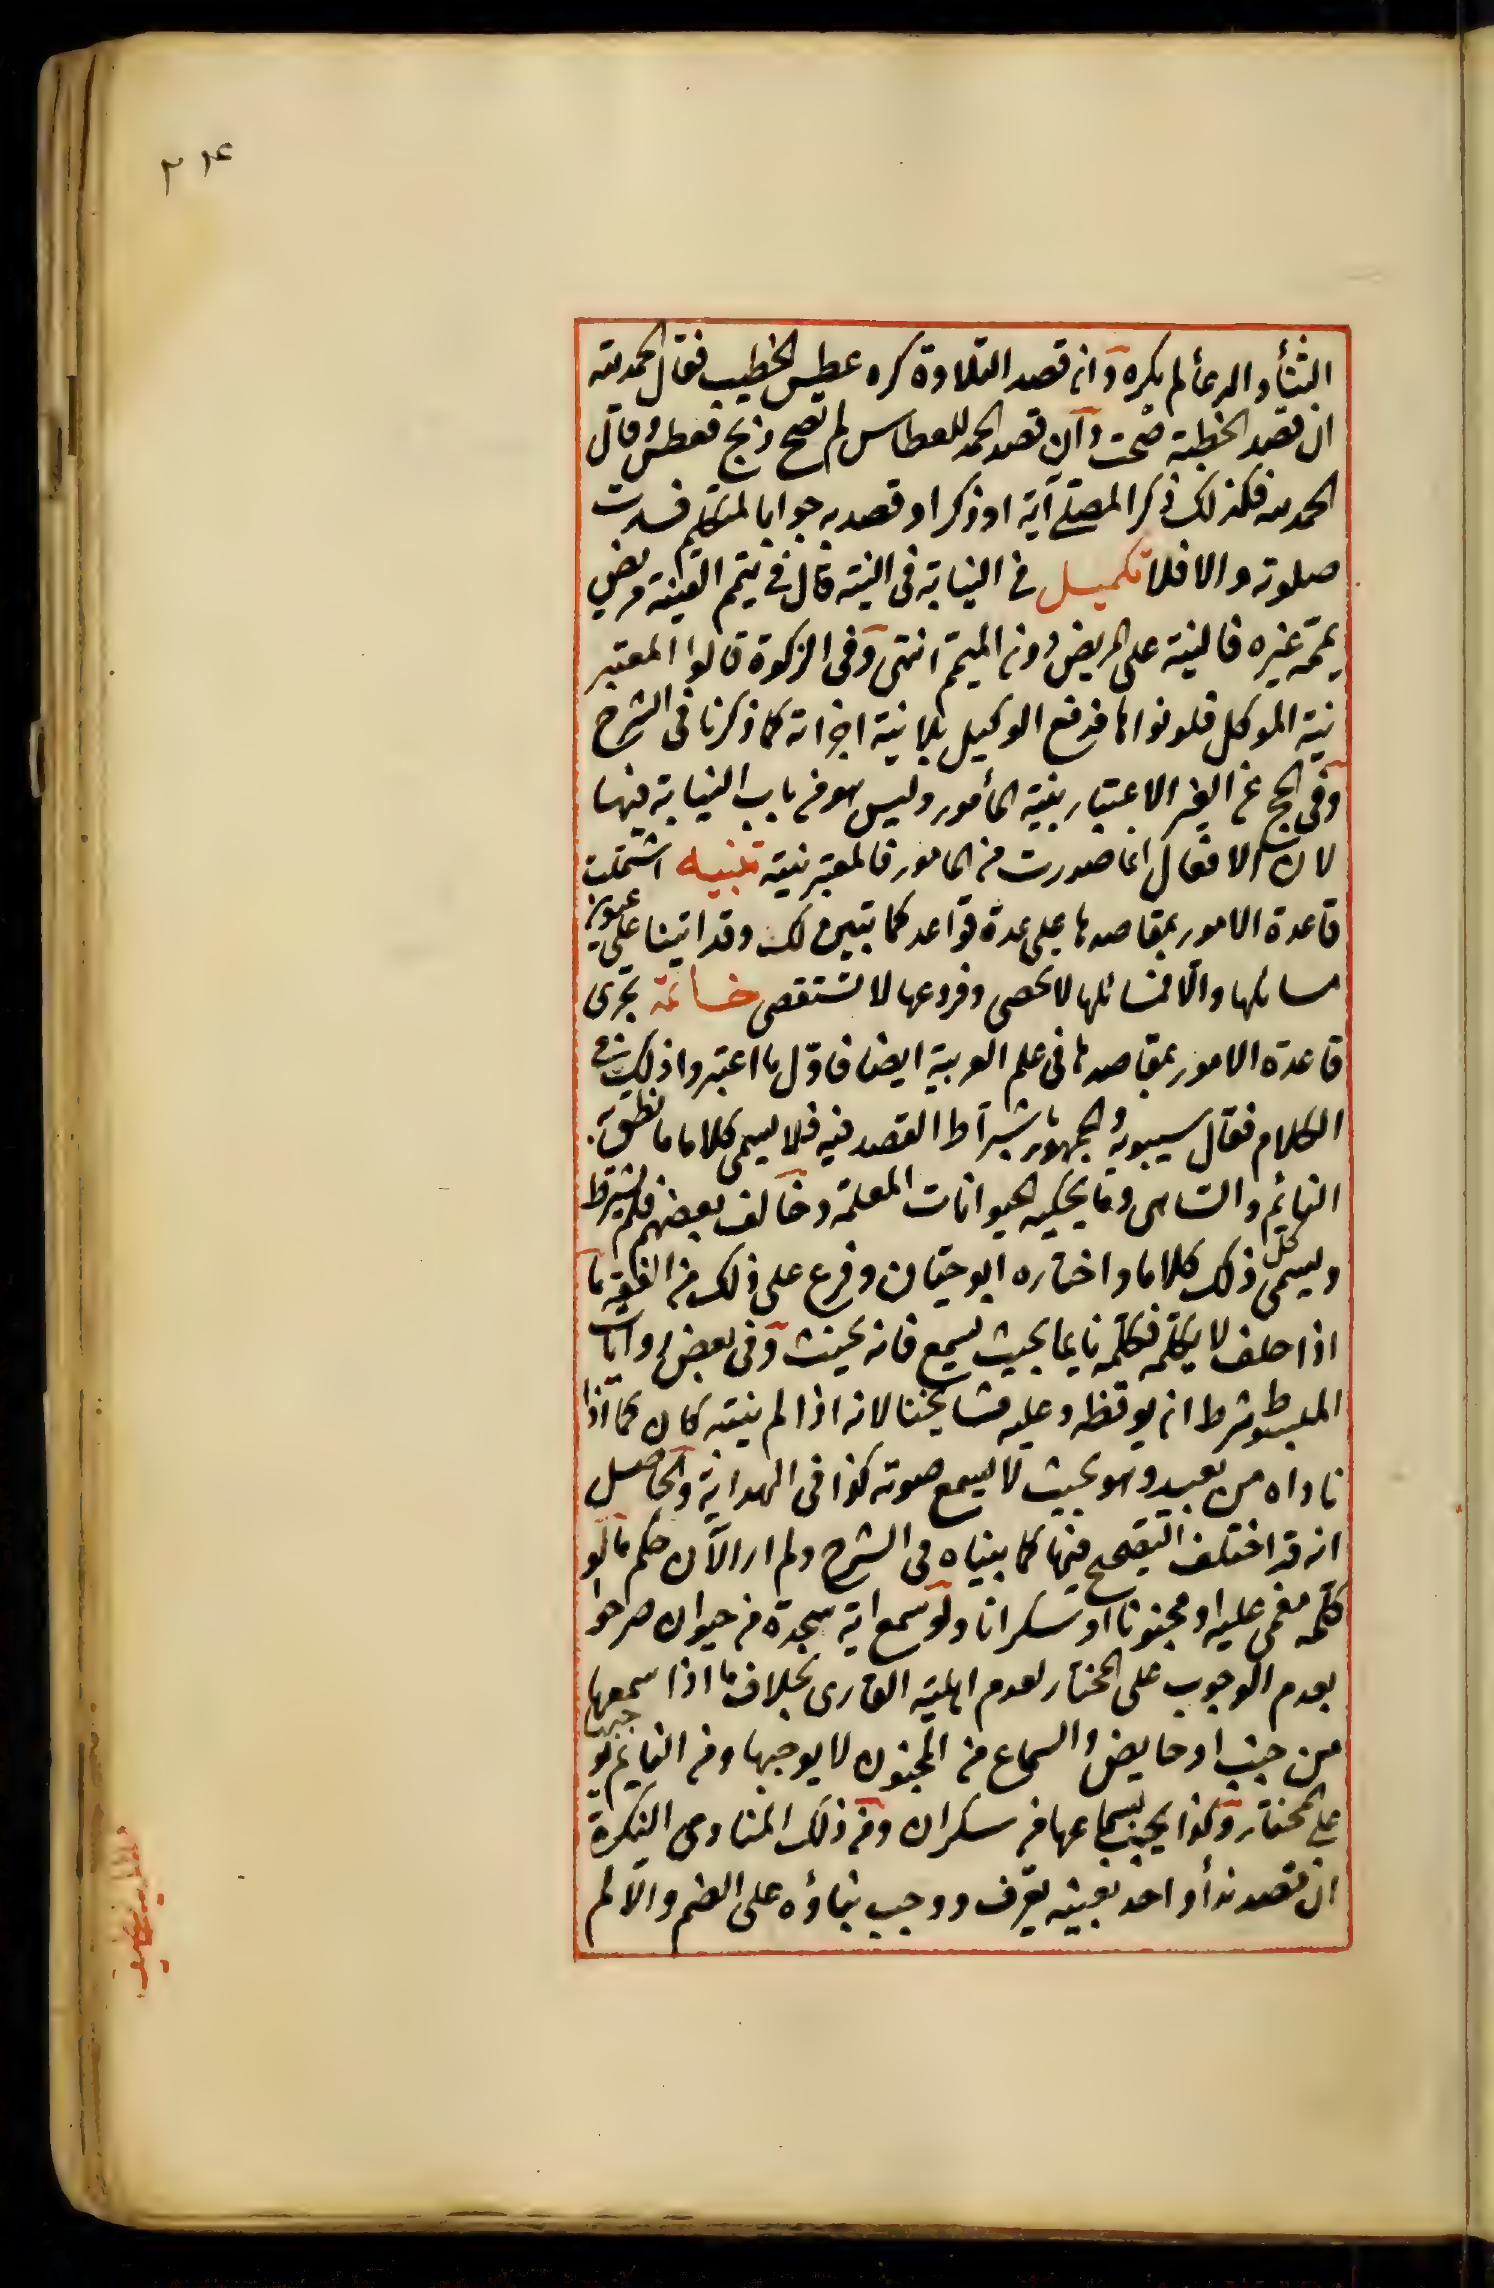 الثناء والدعاء لم يكره وان قصد التلاوة كره عطس الخطيب فقال الحمد لله
ان قصد الخطبة صحت وان قصد الحمد للعطاس لم تصح ذبح فعطس وقال
الحمد لله فكذلك ذكر المصلى آية او ذكرا وقصد به جوابا لمتكلم فسدت
صلوته والا فلا تكميل فى النيابة فى النية قال فى تيمم القنية مريض
يممه غيره فالنية على المريض دون الميمم انتهى وفى الزكوة قالوا المعتبر
نية الموكل فلو نواها فدفع الوكيل بلا نية اجزأته كما ذكرنا فى الشرح
وفى الحج عن الغير الاعتبار بنية المأمور وليس هو من باب النيابة فيها
لان الافعال انما صدرت من المامور فالمعتبر نيته تنبيه اشتملت
قاعدة الامور بمقاصدها على عدة قواعد كما تبين لك وقد اتينا على عيون
مسائلها والا فمسائلها لا تحصى وفروعها لا تستقصى خاتمة تجرى
قاعدة الامور بمقاصدها فى علم العربية ايضا فاول ما اعتبروا ذلك فى
الكلام فقال سيبويه والجمهور باشتراط القصد فيه فلا يسمى كلاما ما نطق به
النايم والساهى وما يحكيه الحيوانات المعلمة وخالف بعضهم فلم يشترط
ويسمى كل ذلك كلاما واختاره ابو حيان وفرع على ذلك من الفقه ما
اذا حلف لا يكلمه فكلمه نايما بحيث يسمع فانه يحنث وفى بعض روايات
المبسوط شرط ان يوقظه وعليه مشايخنا لانه اذا لم ينتبه كان كما اذا
ناداه من بعيد وهو بحيث لا يسمع صوته كذا فى الهداية والحاصل
انه قد اختلف التصحيح فيها كما بيناه فى الشرح ولم ار الآن حكم ما لو
كلمه مغمى عليه او مجنونا او سكرانا ولو سمع اية سجدة من حيوان صرحوا
بعدم الوجوب على المختار لعدم اهلية القارى بخلاف ما اذا سمعها
من جنب او حايض والسماع من المجنون لا يوجبها ومن النايم يوجبها
على المختار وكذا يجب بسماعها من سكران ومن ذلك المنادى النكرة
ان قصد نداء واحد بعينه تعرف ووجب بناؤه على الضم والا لم